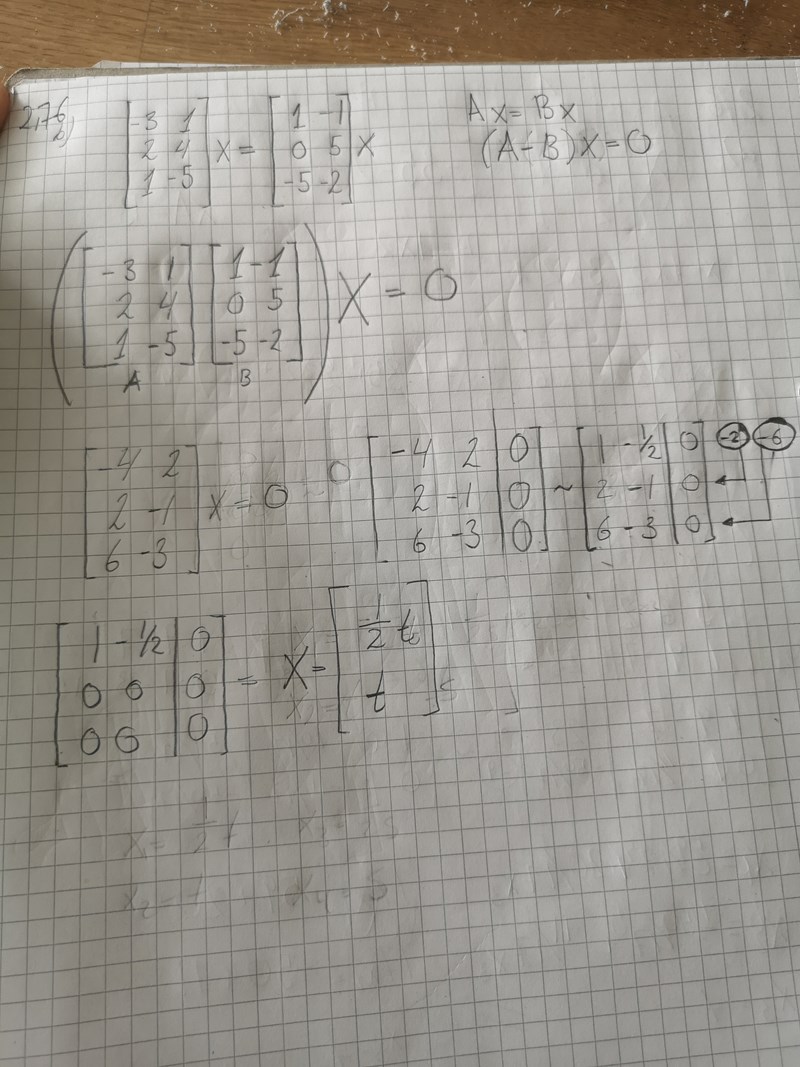 2,76
b)
[-3 1; 2 4; 1 -5] X = [1 -1; 0 5; -5 -2] X
Ax = Bx
(A-B)X = 0
([-3 1; 2 4; 1 -5] [1 -1; 0 5; -5 -2]) X = 0
A B
[-4 2; 2 -1; 6 -3] X = 0
[-4 2 | 0; 2 -1 | 0; 6 -3 | 0] ~ [1 -1/2 | 0; 2 -1 | 0; 6 -3 | 0] -2 -6
[1 -1/2 | 0; 0 0 | 0; 0 0 | 0] = X = [1/2 t; t]